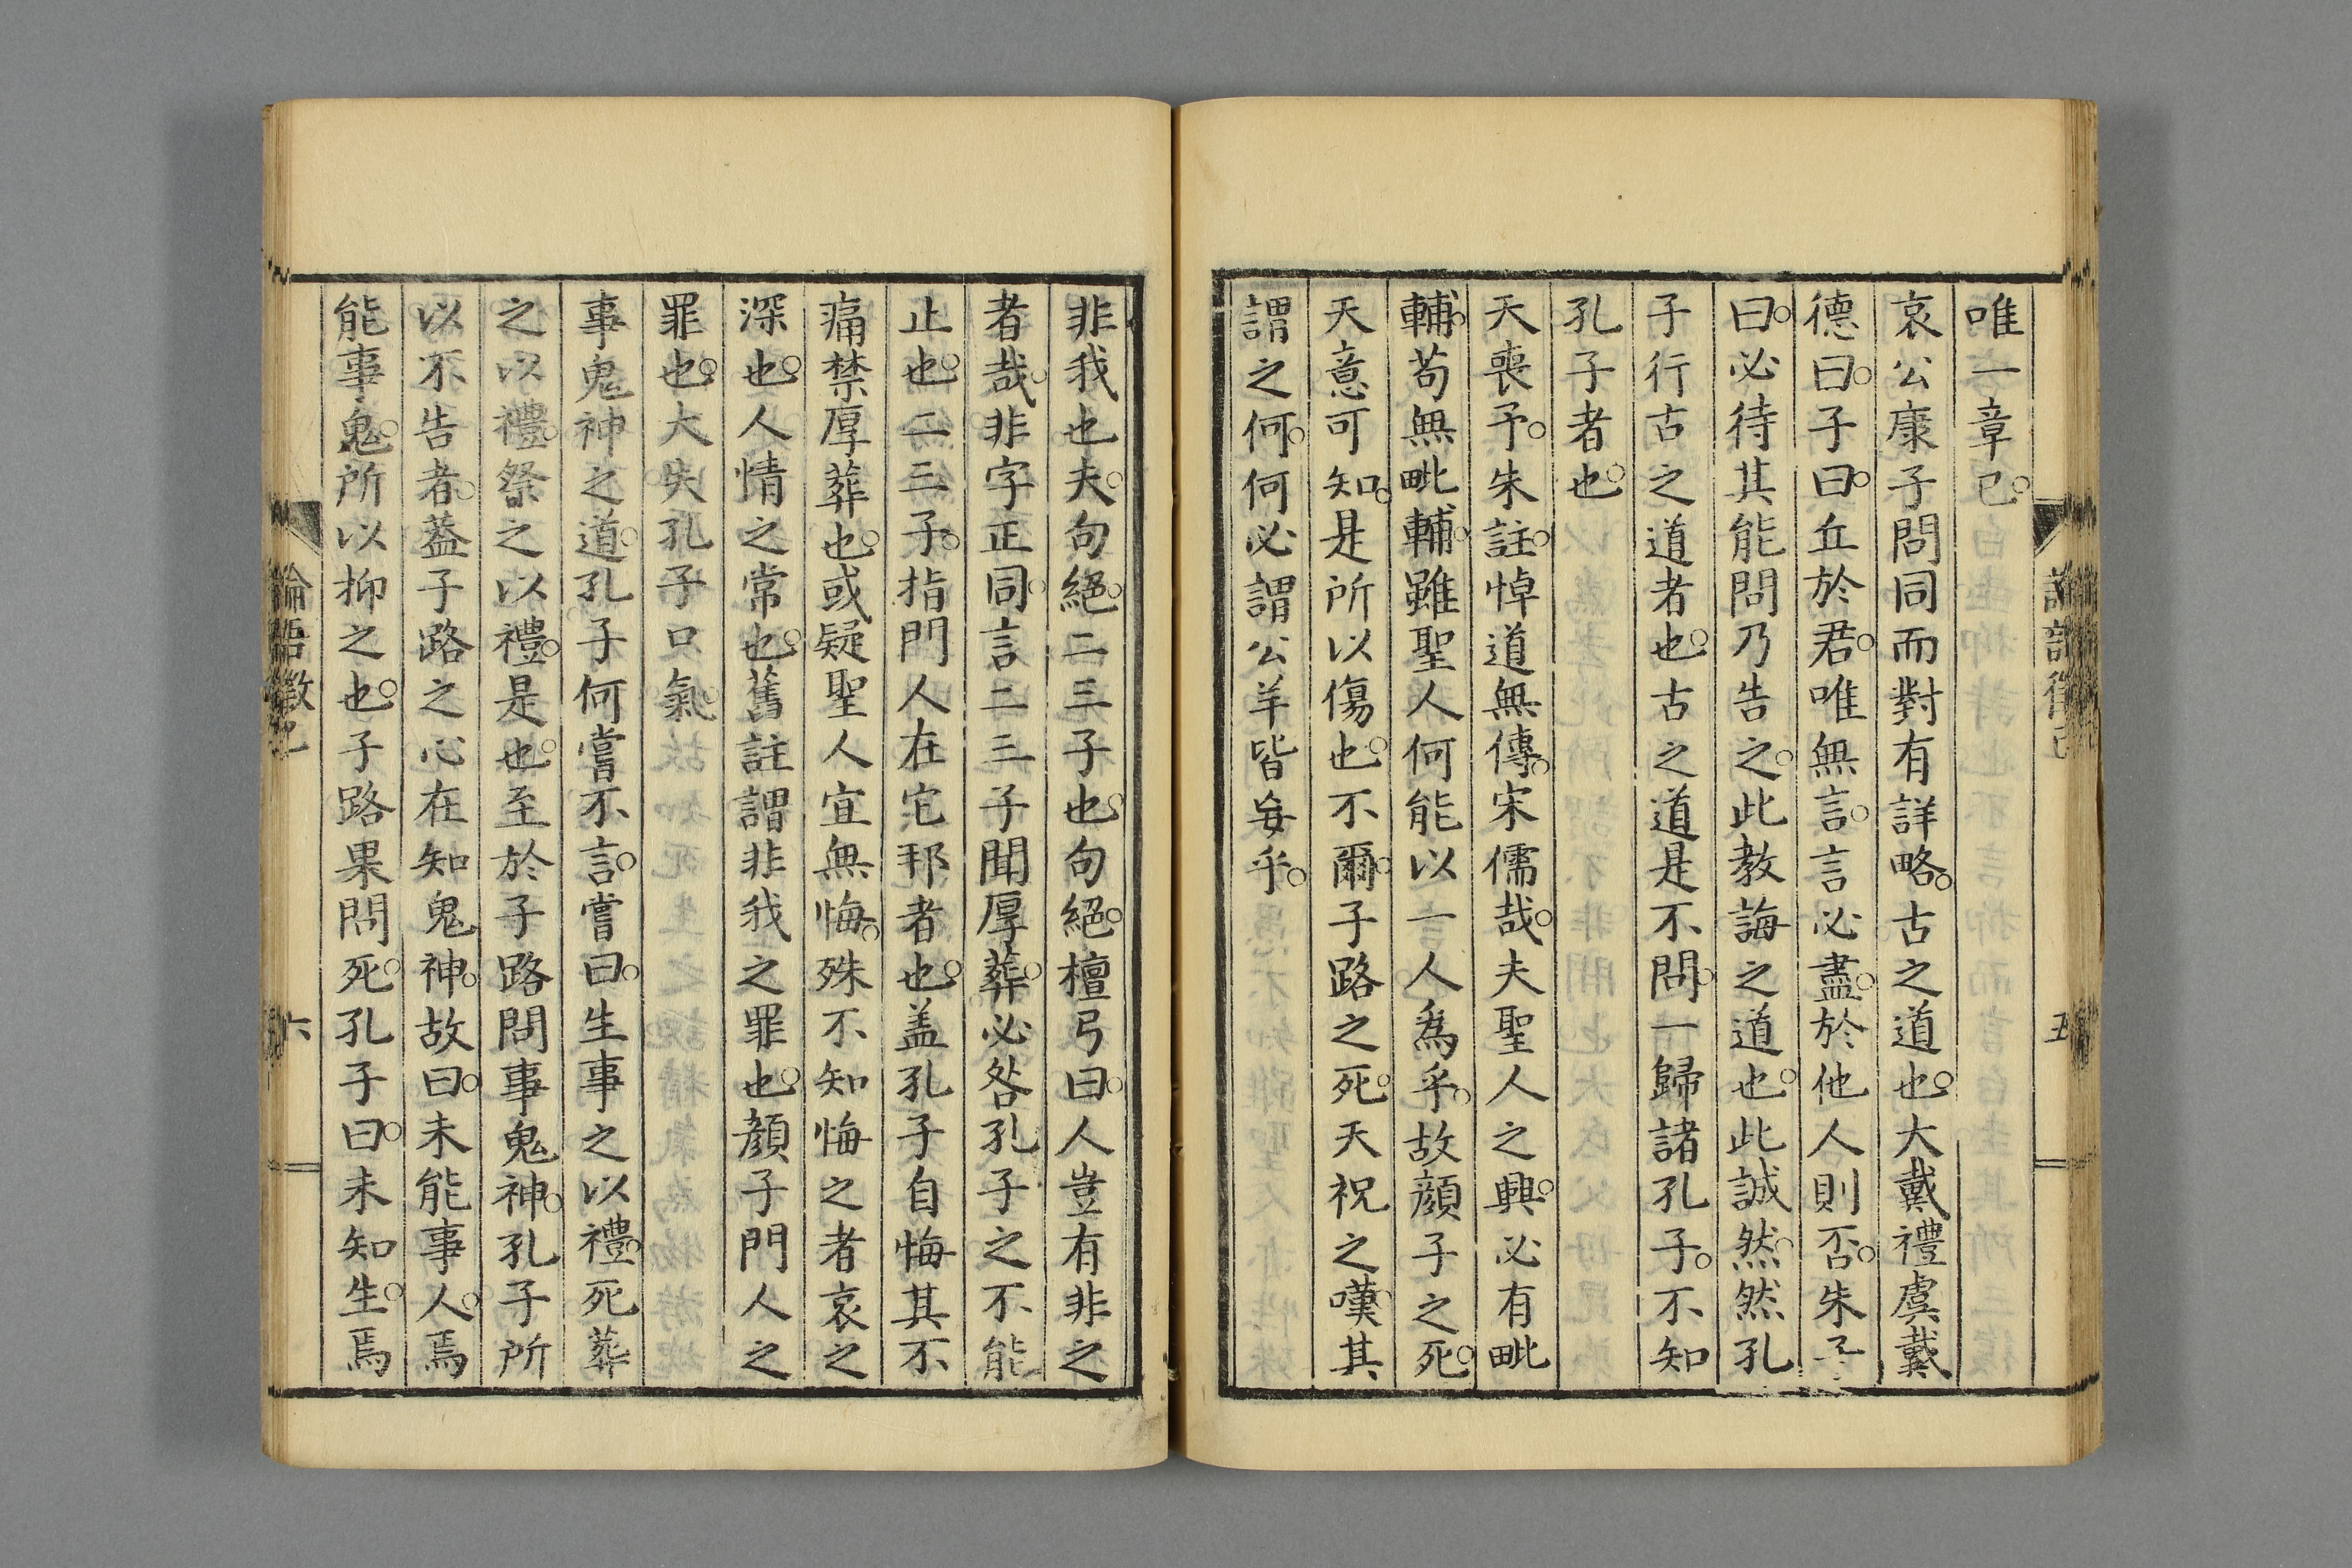 唯一章已。
哀公康子問同而對有詳略。古之道也。大戴禮虞戴
德曰。子曰。丘於君。唯無言。言必盡。於他人則否。朱子
曰。必待其能問乃告之。此教誨之道也。此誠然。然孔
子行古之道者也。古之道是不問。一歸諸孔子。不知
孔子者也。
天喪予。朱註。悼道無傳。宋儒哉。夫聖人之興。必有毗
輔。苟無毗輔。雖聖人何能以一人爲乎。故顏子之死。
天意可知。是所以傷也。不爾。子路之死。天祝之嘆。其
謂之何。何必謂公羊皆妄乎。
非我也夫。句絕。二三子也。句絕。檀弓曰。人豈有非之
者哉。非字正同。言二三子聞厚葬。必咎孔子之不能
止也。二三子。指門人在它邦者也。盖孔子自悔其不
痛禁厚葬也。或疑聖人宜無悔。殊不知悔之者哀之
深也。人情之常也。舊註謂非我之罪也。顏子門人之
罪也。大失孔子口氣。
事鬼神之道。孔子何嘗不言。嘗曰。生事之以禮。死葬
之以禮。祭之以禮。是也。至於子路問事鬼神。孔子所
以不告者。葢子路之心在知鬼神。故曰。未能事人。焉
能事鬼。所以抑之也。子路果問死。孔子曰。未知生。焉
論語徵己
五
六